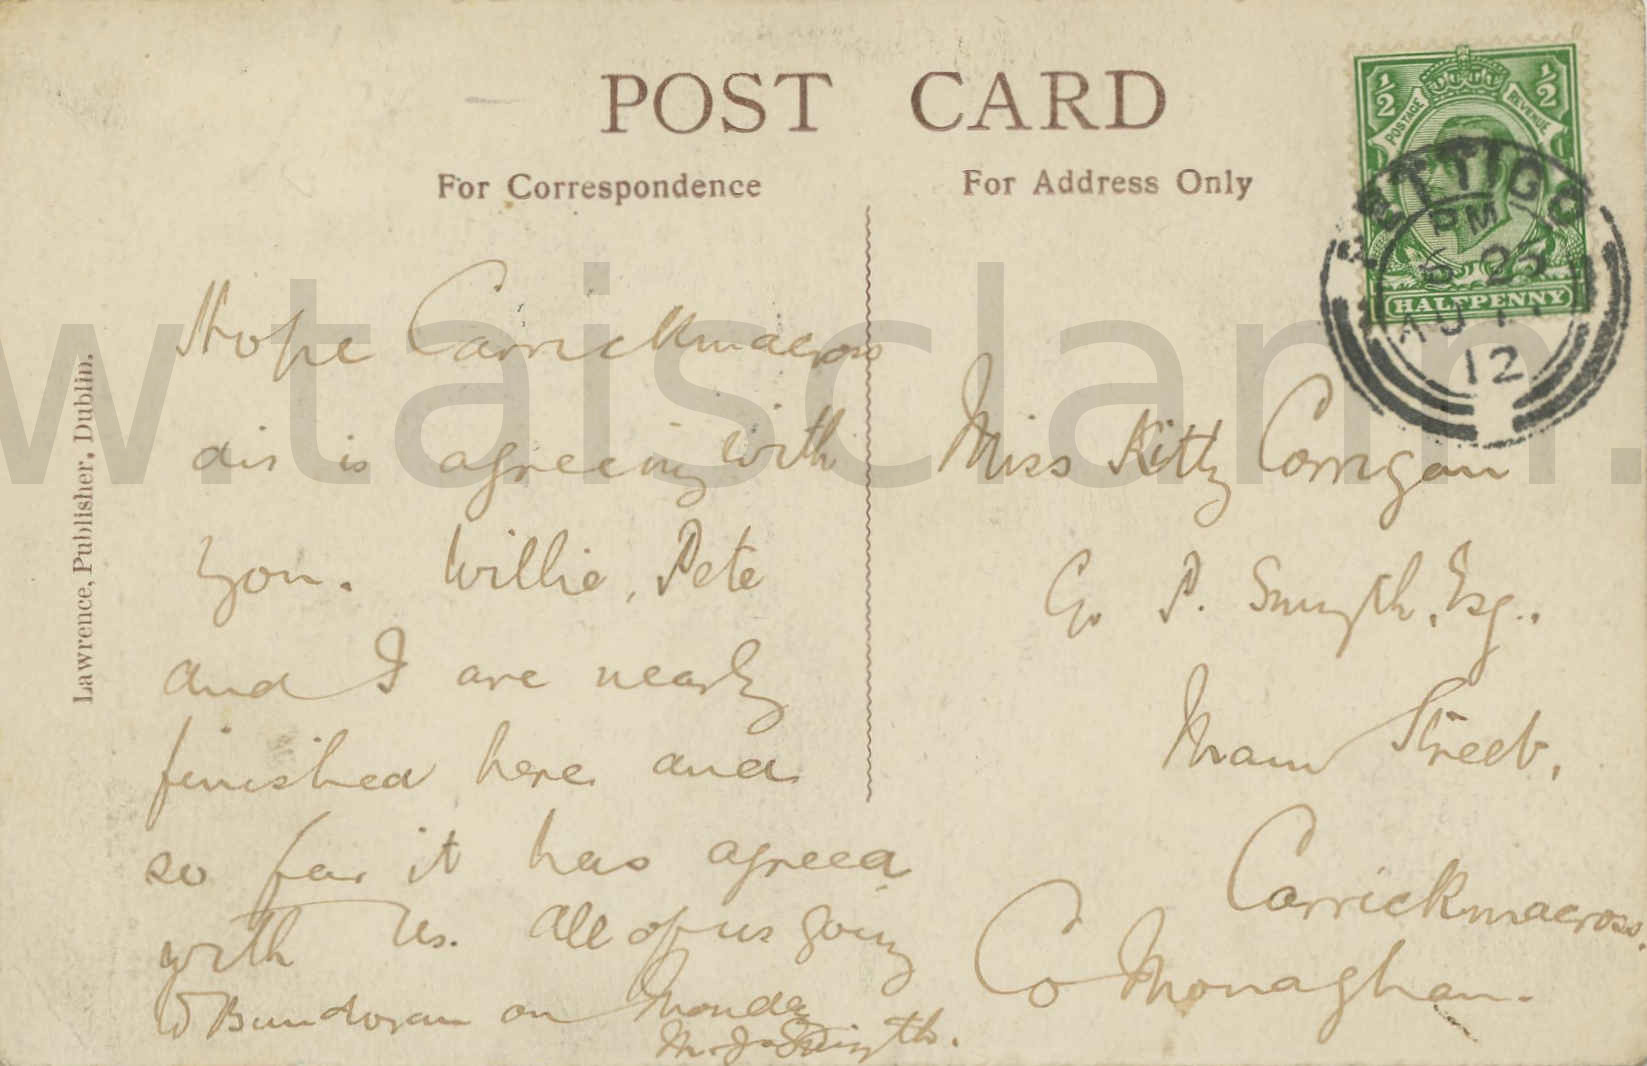 POST CARD
For Correspondence
For Address Only
½ ½
POSTAGE REVENUE
HALFPENNY
PETTIGO
PM
25
AU
12
Lawrence, Publisher, Dublin.
w.taisclann.
Hope Carrickmacross
air is agreeing with
you. Willie, Pete
and I are nearly
finished here and
so far it has agreed
with us. All of us going
to Bundoran on Monday
M. J. Smyth.
Miss Kitty Corrigan
P. Smyth, Esq.,
Main Street,
Carrickmacross.
Co Monaghan.